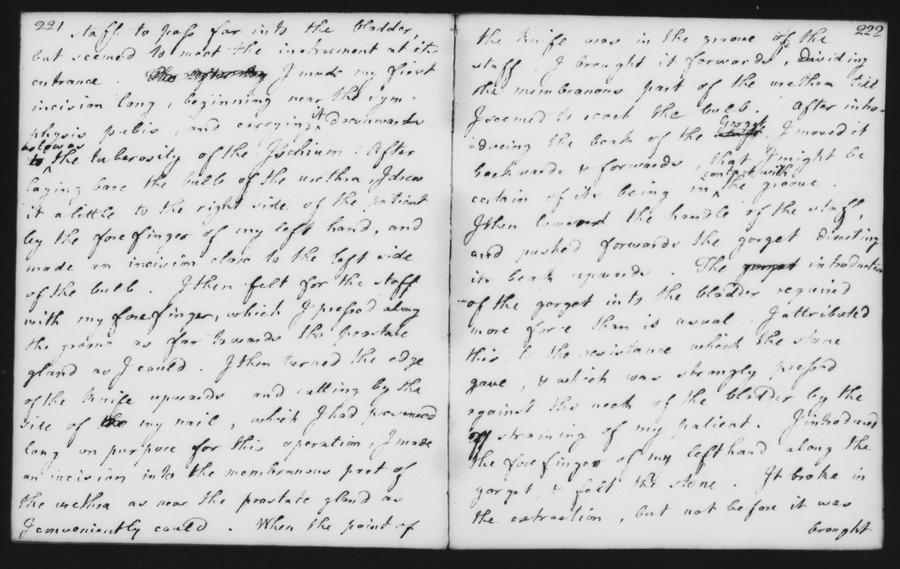 221
staff to pass far into the bladder,
but seemed to meet the instrument at its
entrance. The after day I made my first
incision long, beginning near the sym=
physis pubis, and carrying it downwards
below
to the tuberosity of the Ischium. After
laying bare the bulb of the urethra, I drew
it a little to the right side of the patient
by the fore finger of my left hand, and
made an incision close to the left side
of the bulb. I then felt for the staff
with my fore finger, which I pressed along
the groove as far towards the prostate
gland as I could. I then turned the edge
of the knife upwards and cutting by the
side of the my nail, which I had preserved
long on purpose for this operation, I made
an incision into the membranous part of
the urethra as near the prostate gland as
I conveniently could. When the point of
222
the knife was in the groove of the
staff I brought it forwards, dividing
the membranous part of the urethra till
I seemed to reach the bulb. After intro=
=ducing the beak of the Gorget, I moved it
backwards & forwards, that I might be
certain of its being in contact with the groove.
I then lowered the handle of the staff,
and pushed forwards the gorget directing
its beak upwards. The gorget introduction
of the gorget into the bladder required
more force than is usual. I attributed
this to the resistance which the stone
gave, & which was strongly pressed
against the neck of the bladder by the
straining of my patient. I introduced
the fore finger of my left hand along the
gorget, & felt the stone. It broke in
the extraction, but not before it was
brought